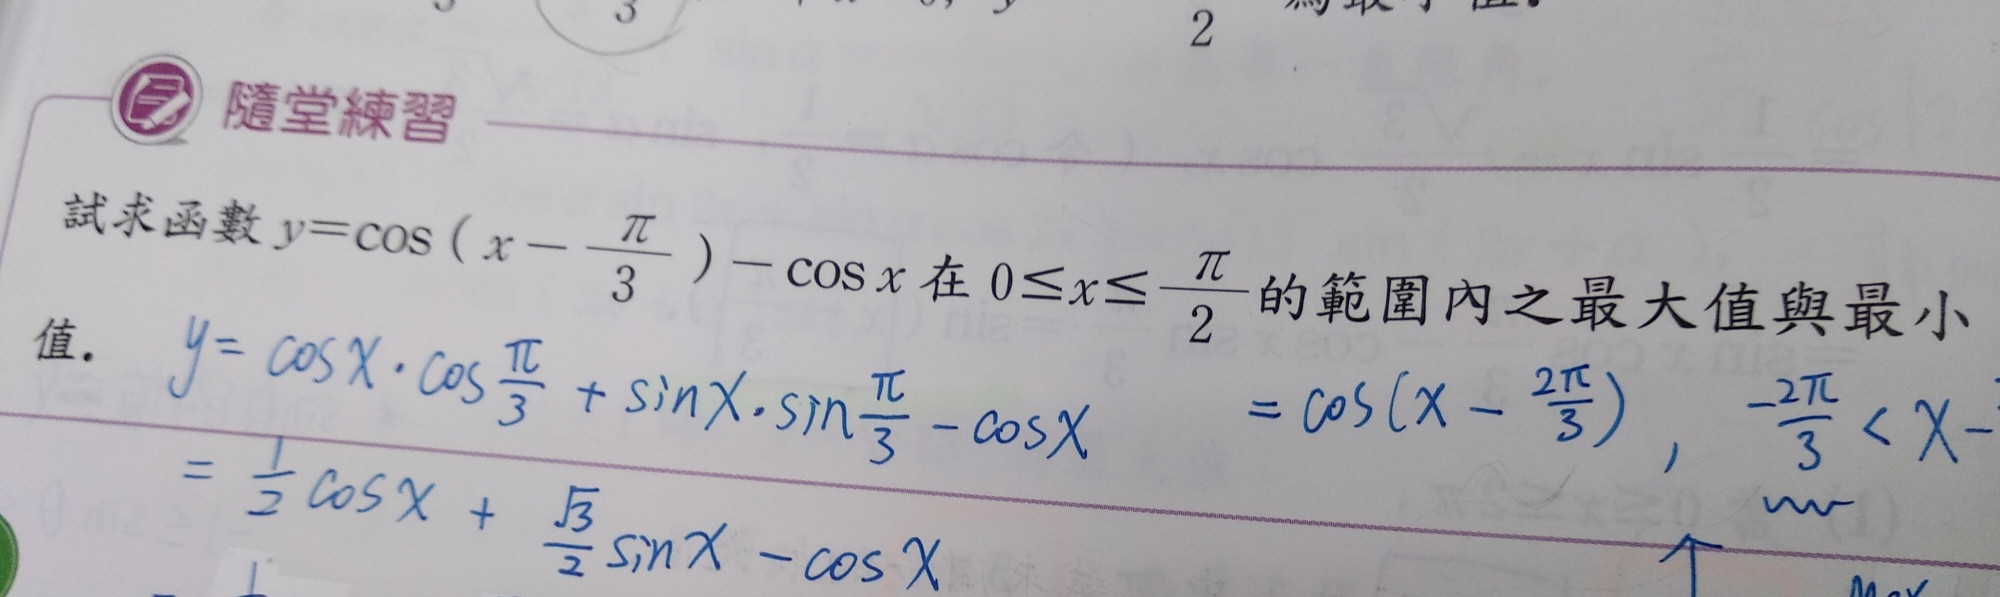 3
2
隨堂練習
試求函數 y=cos(x-π/3)-cos x 在 0≤x≤π/2 的範圍內之最大值與最小
值.
y = cosX·cos π/3 + sinX·sin π/3 - cosX
= 1/2 cosX + √3/2 sinX - cosX
= cos(X - 2π/3), -2π/3 < X -
Max